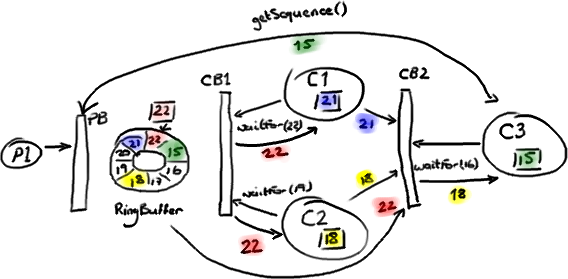 getSequence()
15
P1
PB
22
21 22 15 16 17 18 19 20
RingBuffer
CB1
C1
21
waitFor(22)
22
21
waitFor(19)
22
C2
18
18
22
CB2
waitFor(16)
18
C3
15